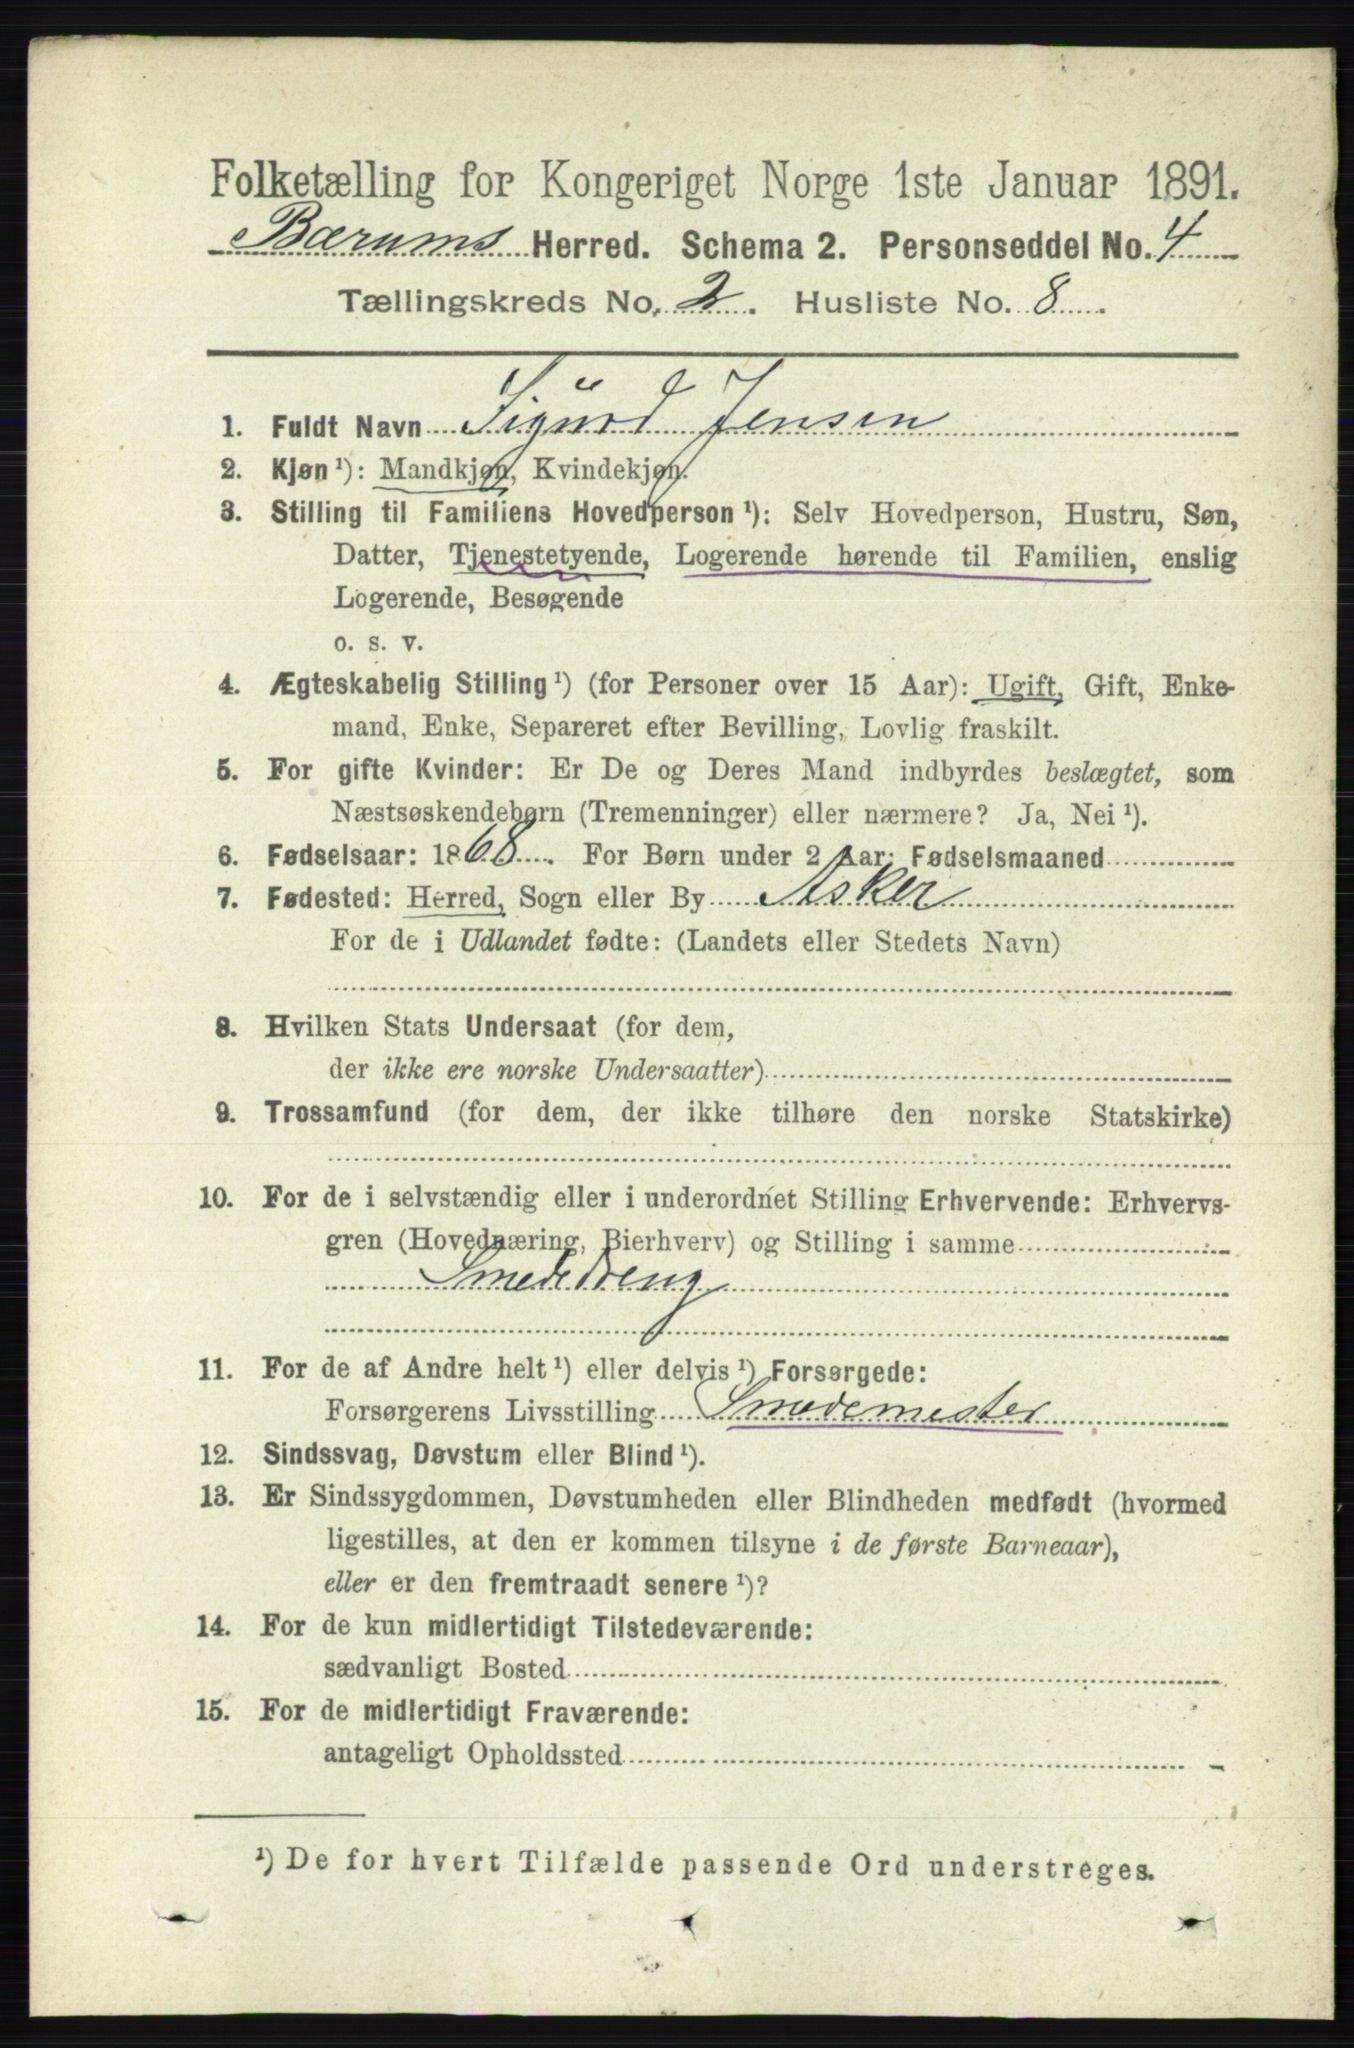 Folketælling for Kongeriget Norge 1ste Januar 1891.
Bærums Herred. Schema 2. Personseddel No. 4
Tællingskreds No. 2. Husliste No. 8.
1. Fuldt Navn Sigurd Jensen
2. Kjøn ¹): Mandkjøn, Kvindekjøn.
3. Stilling til Familiens Hovedperson ¹): Selv Hovedperson, Hustru, Søn,
Datter, Tjenestetyende, Logerende hørende til Familien, enslig
Logerende, Besøgende
o. s. v.
4. Ægteskabelig Stilling ¹) (for Personer over 15 Aar): Ugift, Gift, Enke-
mand, Enke, Separeret efter Bevilling, Lovlig fraskilt.
5. For gifte Kvinder: Er De og Deres Mand indbyrdes beslægtet, som
Næstsøskendebørn (Tremenninger) eller nærmere? Ja, Nei ¹).
6. Fødselsaar: 1868. For Børn under 2 Aar: Fødselsmaaned
7. Fødested: Herred, Sogn eller By Asker
For de i Udlandet fødte: (Landets eller Stedets Navn)
8. Hvilken Stats Undersaat (for dem,
der ikke ere norske Undersaatter)
9. Trossamfund (for dem, der ikke tilhøre den norske Statskirke)
10. For de i selvstændig eller i underordnet Stilling Erhvervende: Erhvervs-
gren (Hovednæring, Bierhverv) og Stilling i samme
Smededreng
11. For de af Andre helt ¹) eller delvis ¹) Forsørgede:
Forsørgerens Livsstilling Smedemester
12. Sindssvag, Døvstum eller Blind ¹).
13. Er Sindssygdommen, Døvstumheden eller Blindheden medfødt (hvormed
ligestilles, at den er kommen tilsyne i de første Barneaar),
eller er den fremtraadt senere ¹)?
14. For de kun midlertidigt Tilstedeværende:
sædvanligt Bosted
15. For de midlertidigt Fraværende:
antageligt Opholdssted
¹) De for hvert Tilfælde passende Ord understreges.